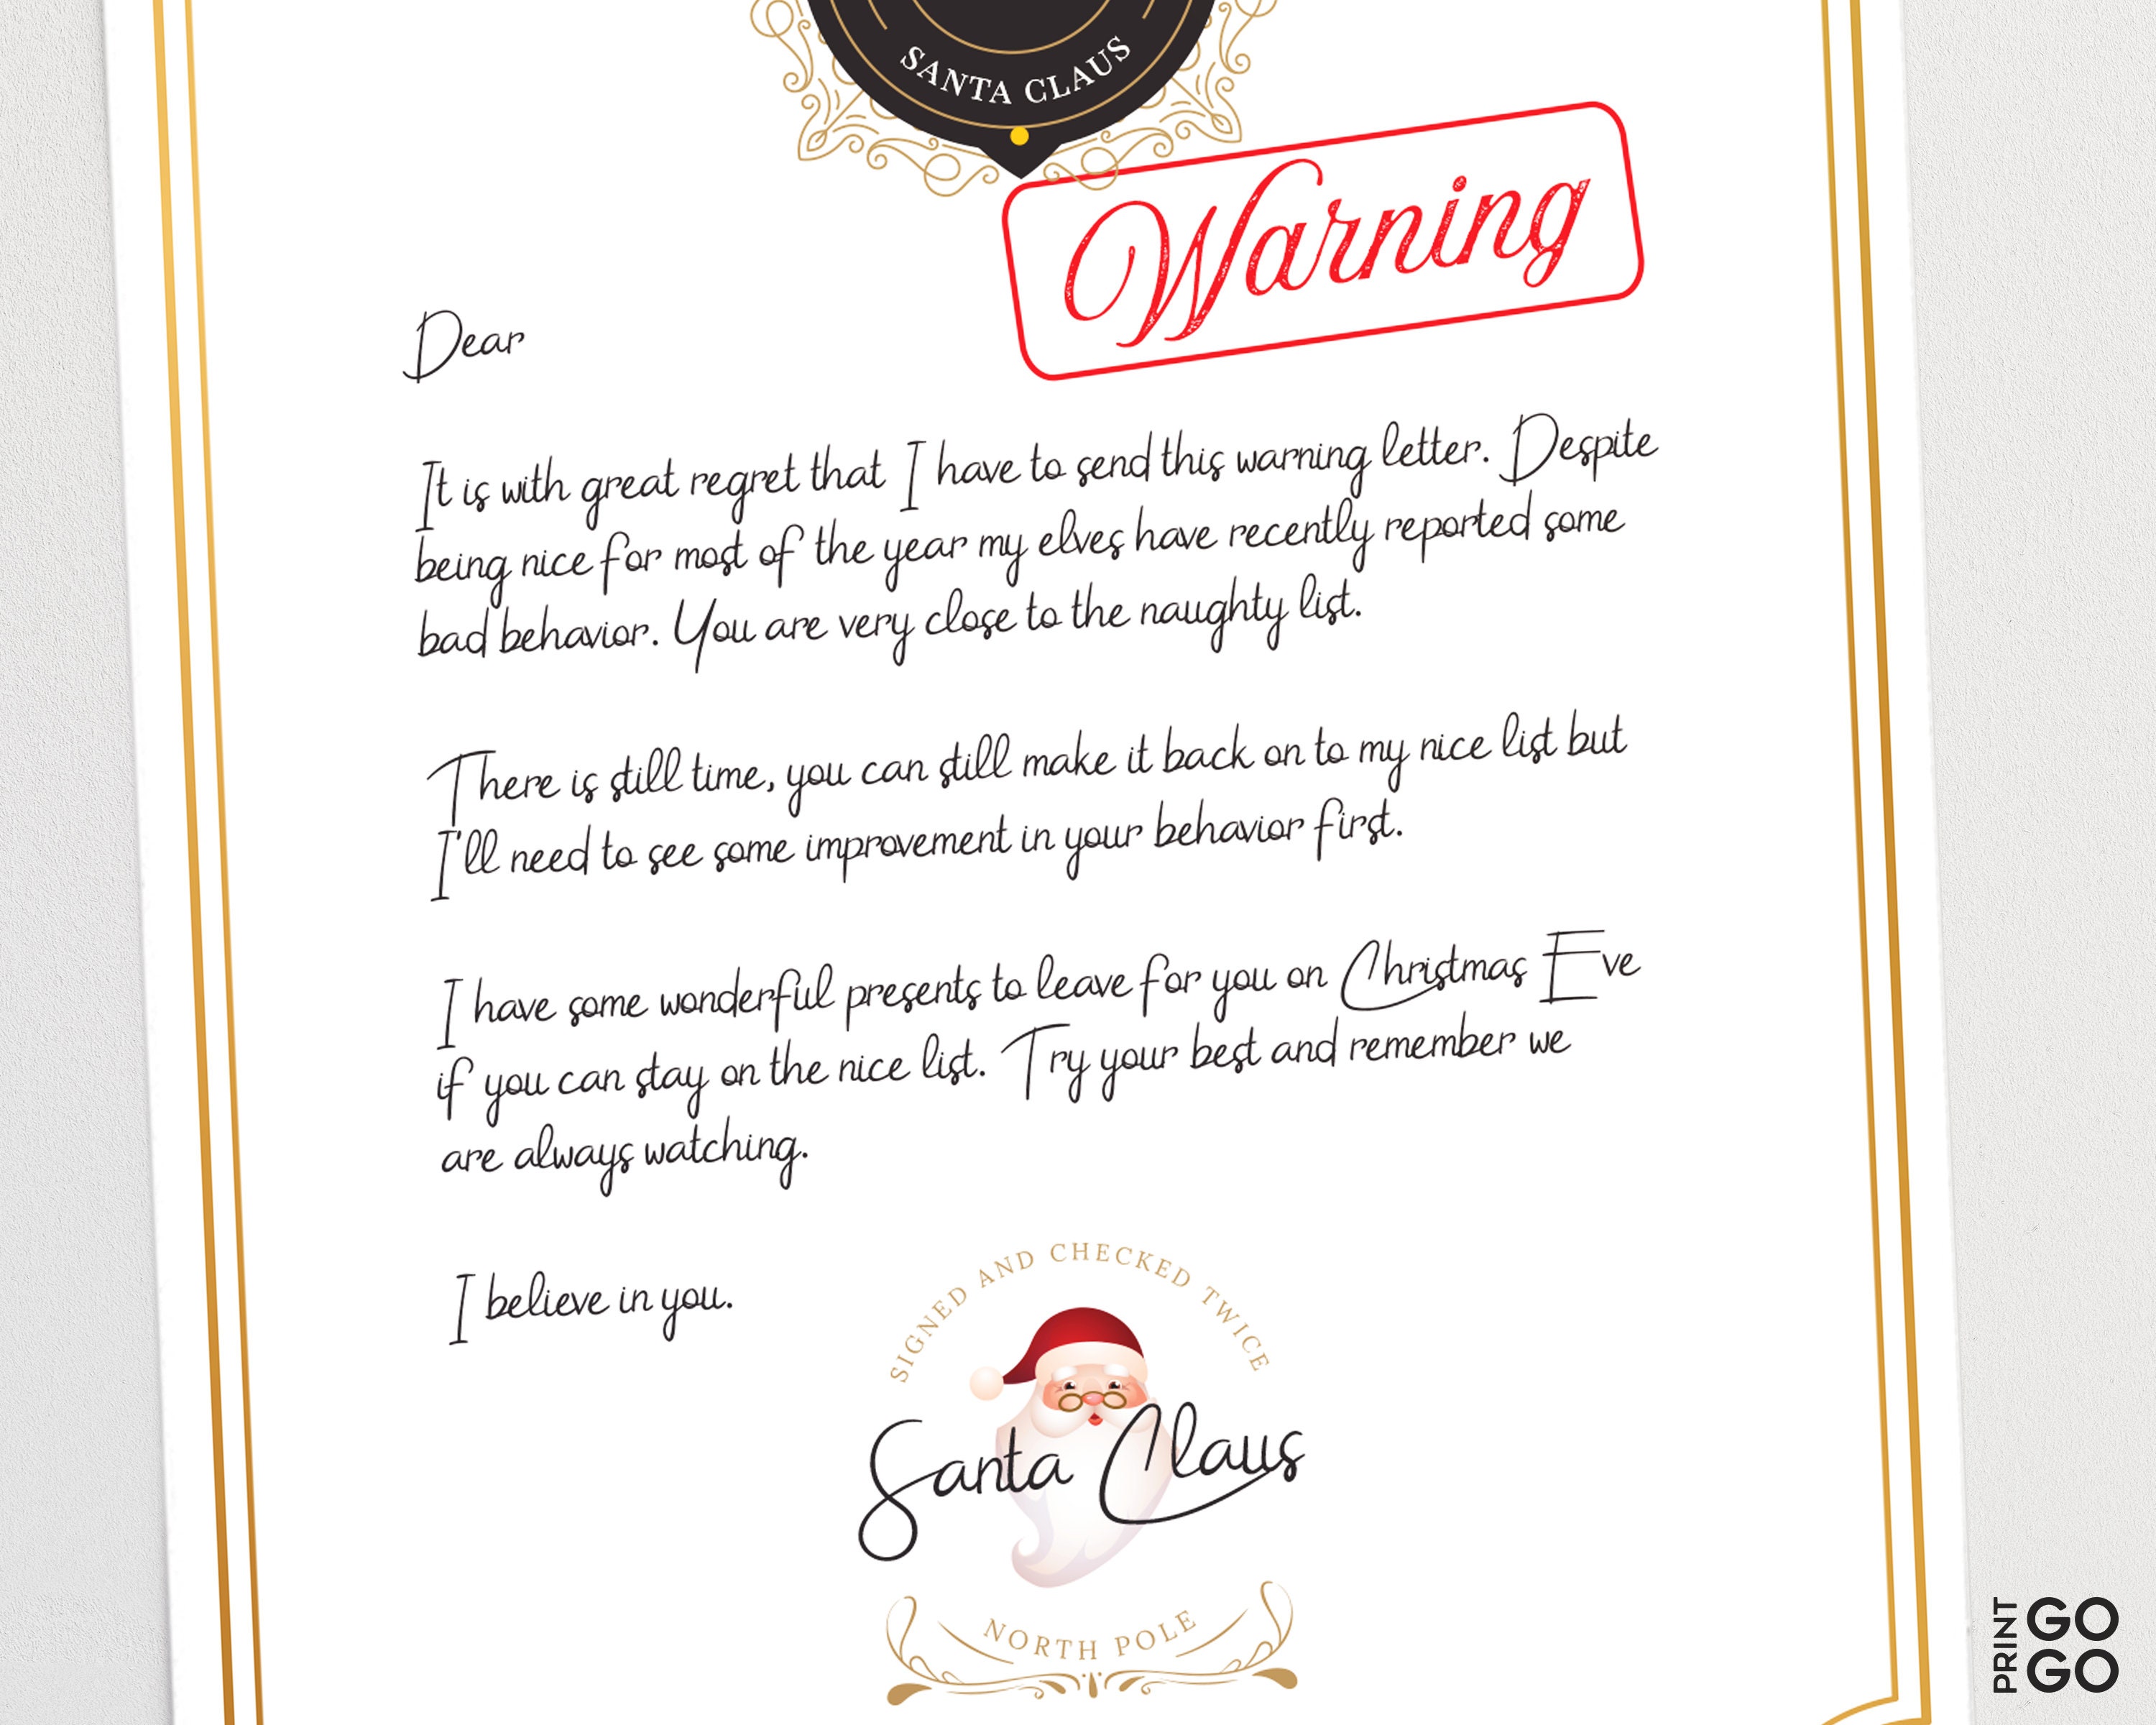 SANTA CLAUS
Warning
Dear
It is with great regret that I have to send this warning letter. Despite
being nice for most of the year my elves have recently reported some
bad behavior. You are very close to the naughty list.
There is still time, you can still make it back on to my nice list but
I'll need to see some improvement in your behavior first.
I have some wonderful presents to leave for you on Christmas Eve
if you can stay on the nice list. Try your best and remember we
are always watching.
I believe in you.
SIGNED AND CHECKED TWICE
Santa Claus
NORTH POLE
PRINT
GO
GO